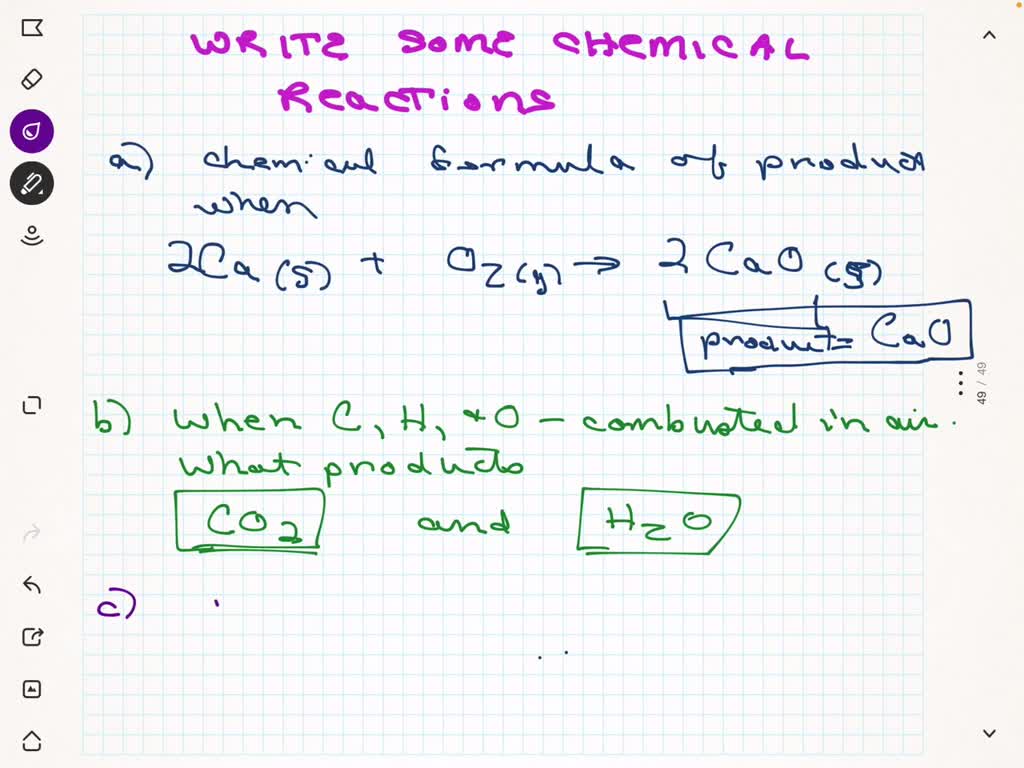 WRITE SOME CHEMICAL
Reactions
a) chemical formula of product
when
2Ca(s) + O2(g) → 2CaO(s)
product = CaO
49 / 49
b) when C, H, + O - combusted in air.
What products
CO2 and H2O
c)